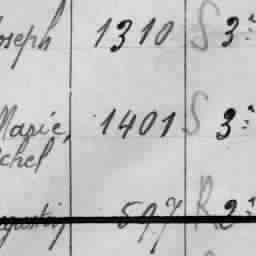 oseph 1310 S 3:
Marie, 1401 S 3:
chel
597 R 2: